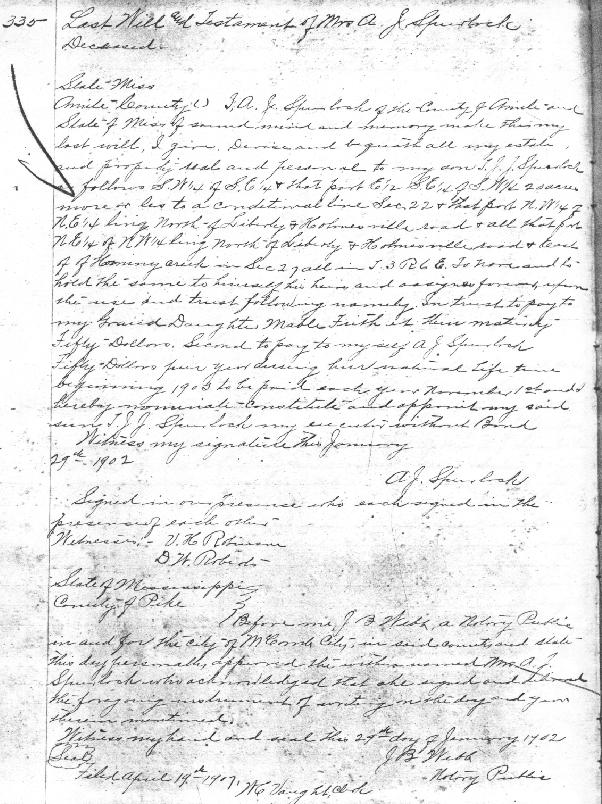 335
Last Will and Testament of Mrs A. J. Spurlock
Deceased.
State Miss
Amite County I, A. J. Spurlock of the County of Amite and
State of Miss of sound mind and memory make this my
last will, I give, Devise and bequeath all my estate
and property real and personal to my son T. J. J. Spurlock
as follows S.W¼ of S.E¼ & that part E½ S.E¼ of S.W¼ 20 acres
more or les to a conditional line Sec. 22 & that part N.W¼ of
N.E¼ ling North of Liberty & Holmesville road & all that part
N.E¼ of N.W¼ ling North of Liberty & Holmesville road & East
of of Hominy creek in Sec 27 all in T. 3 R 6 E. To have and to
hold the same to himself his heirs and assigns forever, upon
the use and trust following namely. In trust to pay to
my Grand Daughter Mable Frith at their maturity
Fifty Dollars. Second to pay to myself A J Spurlock
Fifty Dollars per year during her natural Life time
beginning 1903 to be paid each year November 1st and
hereby nominate constitute and appoint my said
son T. J. J. Spurlock my executor without Bond
Witness my signature this January
29th 1902
A. J. Spurlock
Signed in our presence who each signed in the
presence of each other
Witnesses - V. H. Robinson
D. W. Roberts
State of Mississippi
County of Pike
Before me J. B Webb, a Notory Public
in and for the city of McComb City, in said county and state
this day personally appeared the within named Mrs A. J.
Spurlock who acknowledged that she signed and delivered
the forgoing instrument of writing on the day and year
therein mentioned.
Witness my hand and seal this 29th day of January 1902
Seal
J B Webb
Notory Public
Filed April 19th 1907.
Vaught Clerk